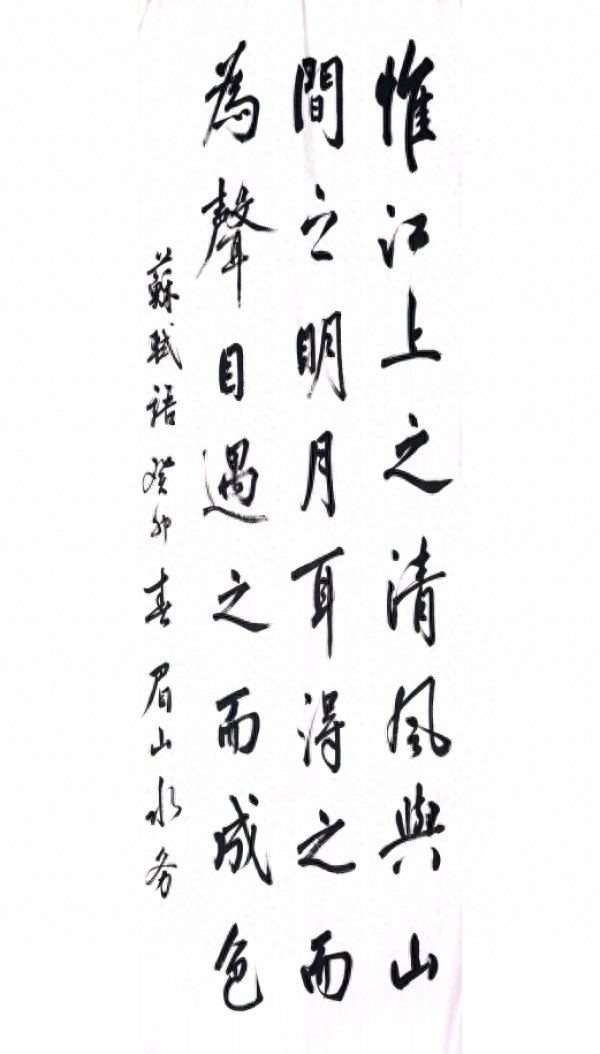 惟江上之清風與山
間之明月耳得之而
為聲目遇之而成色
蘇軾語癸卯春眉山水务